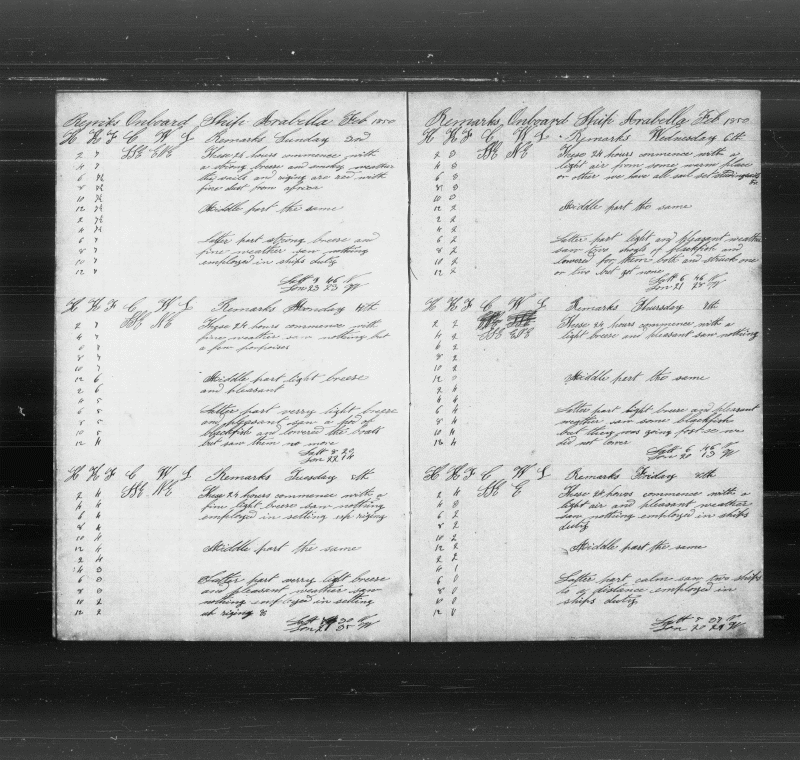 Remarks Onboard Ship Arabella Feb 1850
H K F C W L Remarks Sunday
2 7 SSE ENE These 24 hours commence with
4 7 a strong breeze and smoky weather
6 7½ the sails and riging are red with
8 7½ fine dust from africa
10 7½
12 7½ Middle part the same
2 7½
4 7½
6 7 Latter part strong breeze and
8 7 fine weather saw nothing
10 7 employed in ships duty
12 7
Latt 9 46 N
Lon 23 23 W
H K F C W L Remarks Monday
2 7 SSE NE These 24 hours commence with
4 7 fine weather saw nothing but
6 7 a few porpoises
8 7
10 7
12 6 Middle part light breeze
2 6 and pleasant
4 5
6 5 Latter part verry light breeze
8 5 and pleasant saw a pod of
10 4 blackfish and lowered the boats
12 4 but saw them no more
Latt 8 20
Lon 22 14
H K F C W L Remarks Tuesday
2 4 SSE NE These 24 hours commence with a
4 4 fine light breeze saw nothing
6 4 employed in setting up riging
8 4
10 4
12 4 Middle part the same
2 4
4 3
6 3 Latter part verry light breeze
8 3 and pleasant weather saw
10 2 nothing employed in setting
12 2 up riging &c
Latt 30 N
Lon 21 35 W
Remarks Onboard Ship Arabella Feb 1850
H K F C W L Remarks Wednesday 6th
2 3 SSE NE These 24 hours commence with a
4 3 light air from some warm place
6 3 or other we have all sail set studingsails
8 3 &c
10 3
12 2 Middle part the same
2 2
4 2
6 2 Latter part light and pleasant weather
8 2 saw two shoals of blackfish and
10 2 lowered for them both and struck one
12 2 or two but got none
Latt 6 46 N
Lon 21 28 W
H K F C W L Remarks Thursday
2 2 These 24 hours commence with a
4 2 SSE light breeze and pleasant saw nothing
6 2
8 2
10 2
12 3 Middle part the same
2 4
4 4
6 4 Latter part light breeze and pleasant
8 4 weather saw some blackfish
10 4 but they was going fast so we
12 4 did not lower
Latt 6 46 N
Lon 20 13 W
H K F C W L Remarks Friday 8th
2 4 SSE E These 24 hours commence with a
4 3 light air and pleasant weather
6 2 saw nothing employed in ships
8 2 duty
10 2
12 2 Middle part the same
2 2
4 1
6 0 Latter part calm saw two ships
8 0 to a distance employed in
10 0 ships duty
12 0
Latt 5 N
Lon 20 24 W